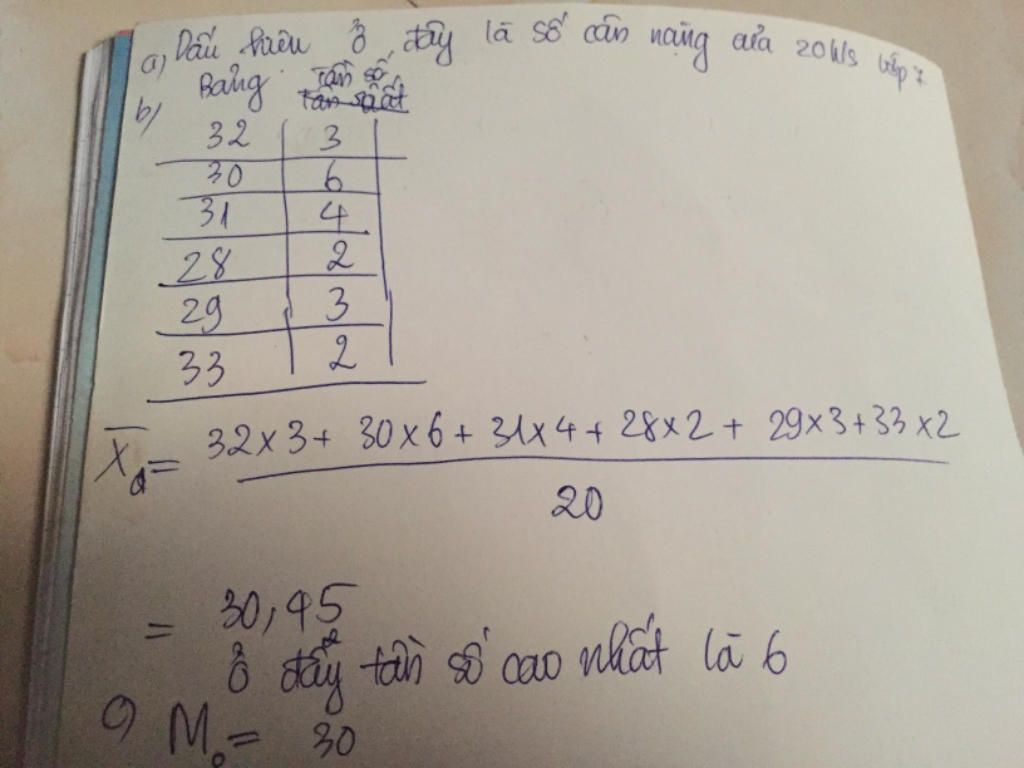 a) Dấu hiệu ở đây là số cân nặng của 20 h/s lớp 7
b) Bảng tần số
32 3
30 6
31 4
28 2
29 3
33 2
X̄ = 32 x 3 + 30 x 6 + 31 x 4 + 28 x 2 + 29 x 3 + 33 x 2
20
= 30,45
ở đây tần số cao nhất là 6
c) M₀ = 30